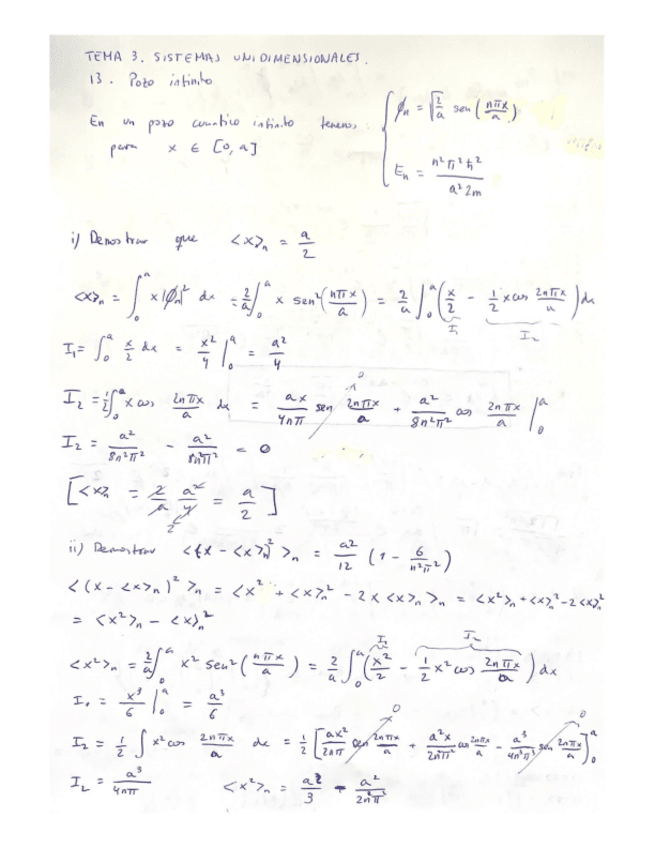 TEMA 3. SISTEMAS UNIDIMENSIONALES.
13. Pozo infinito
En un pozo cuantico infinito tenemos
para x ∈ [0, a]
{ ϕₙ = √(2/a) sen (nπx/a)
Eₙ = n²π²ħ² / a²2m
i) Demostrar que <x>ₙ = a/2
<x>ₙ = ∫₀ᵃ x|ϕₙ|² dx = 2/a ∫₀ᵃ x sen²(nπx/a) = 2/a ∫₀ᵃ (x/2 - 1/2 x cos 2nπx/a) dx
I₁ I₂
I₁ = ∫₀ᵃ x/2 dx = x²/4 |₀ᵃ = a²/4
I₂ = 1/2 ∫₀ᵃ x cos 2nπx/a dx = ax/4nπ sen 2nπx/a + a²/8n²π² cos 2nπx/a |₀ᵃ
0
I₂ = a²/8n²π² - a²/8n²π² = 0
[<x>ₙ = 2/a a²/4 = a/2]
2
ii) Demostrar <(x - <x>ₙ)²>ₙ = a²/12 (1 - 6/n²π²)
<(x - <x>ₙ)²>ₙ = <x² + <x>ₙ² - 2x<x>ₙ>ₙ = <x²>ₙ + <x>ₙ² - 2<x>ₙ²
= <x²>ₙ - <x>ₙ²
I₁ I₂
<x²>ₙ = 2/a ∫₀ᵃ x² sen²(nπx/a) = 2/a ∫₀ᵃ (x²/2 - 1/2 x² cos 2nπx/a) dx
I₁ = x³/6 |₀ᵃ = a³/6
0 0
I₂ = 1/2 ∫ x² cos 2nπx/a dx = 1/2 [ax²/2nπ sen 2nπx/a + a²x/2n²π² cos 2nπx/a - a³/4n³π³ sen 2nπx/a]₀ᵃ
I₂ = a³/4nπ <x²>ₙ = a²/3 - a²/2n²π²